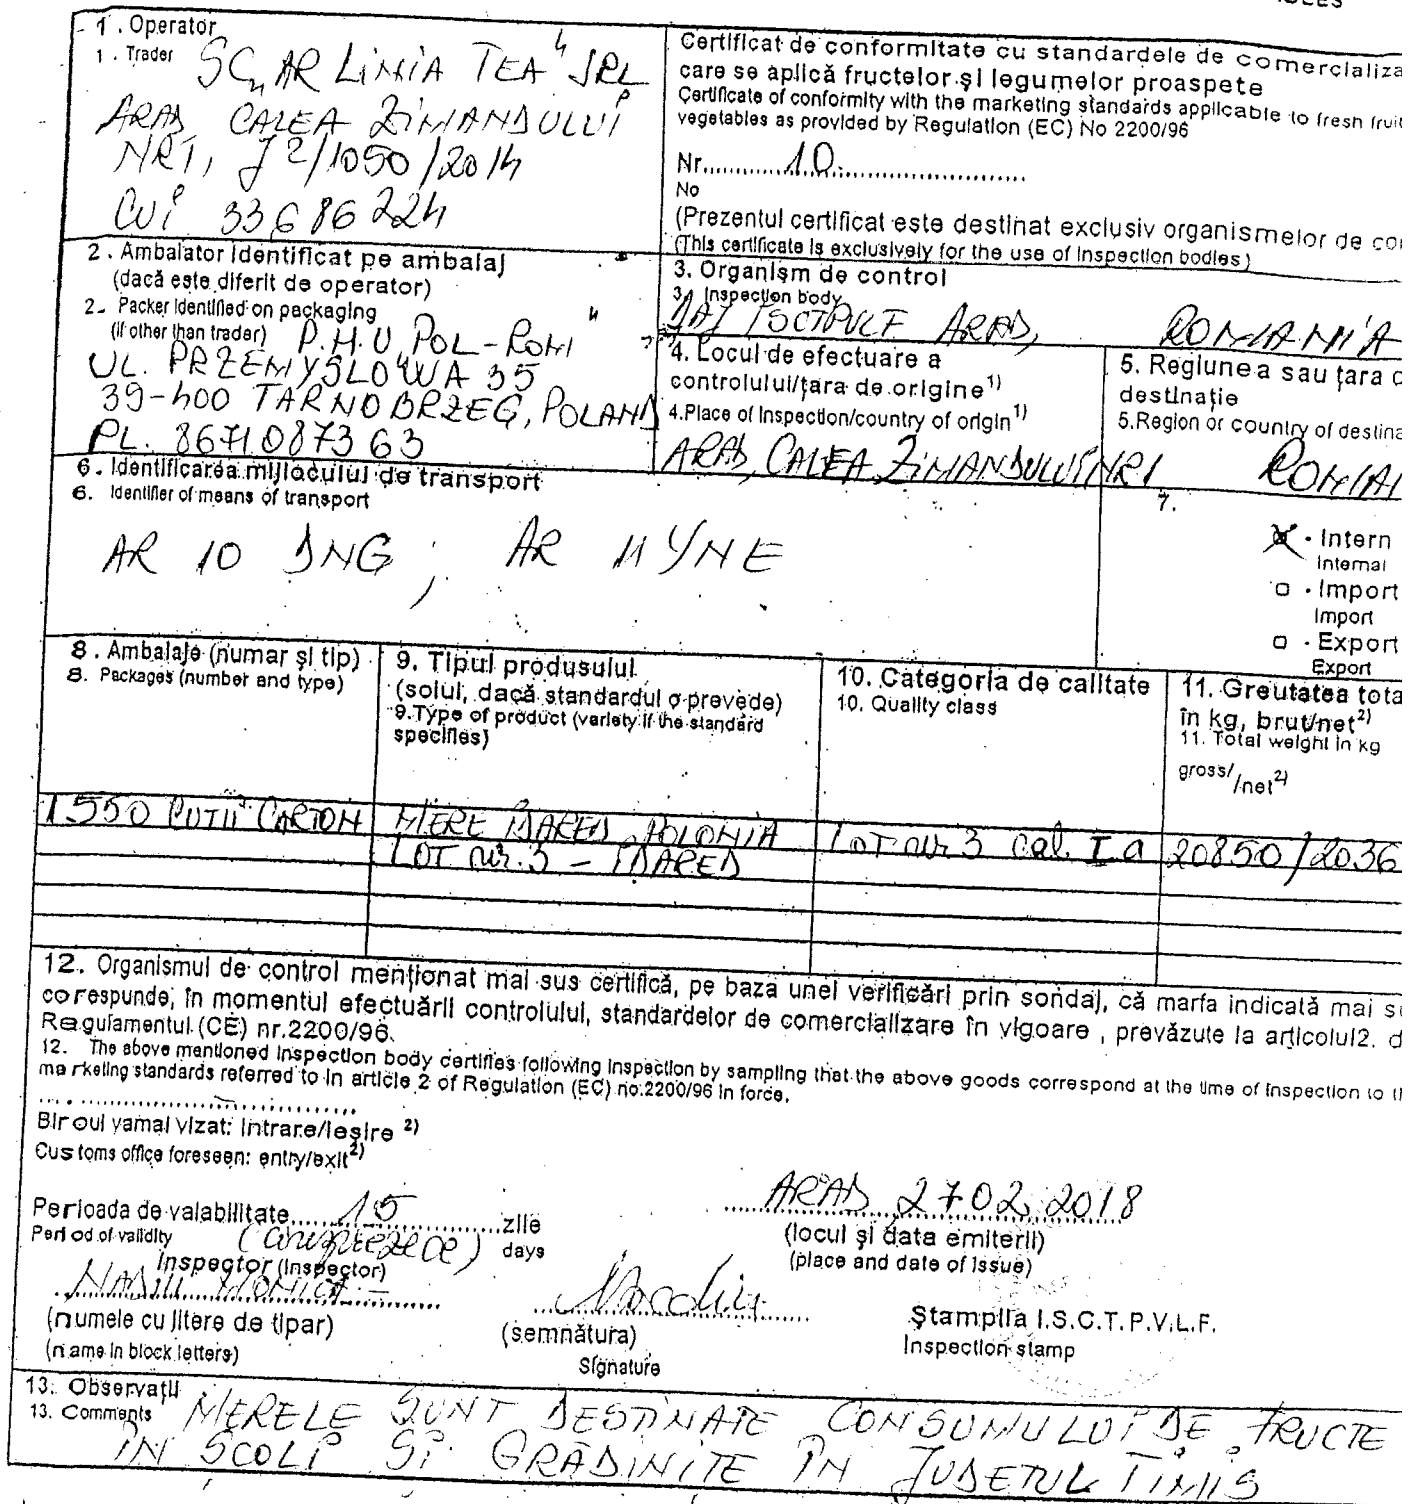 1. Operator
1. Trader SC „AR LINIA TEA" SRL
ARAD, CALEA ZIMANDULUI
NR1, J2/1050/2014
CUI 33686224
Certificat de conformitate cu standardele de comercializa
care se aplică fructelor și legumelor proaspete
Certificate of conformity with the marketing standards applicable to fresh fruit
vegetables as provided by Regulation (EC) No 2200/96
Nr.......10.......
No
(Prezentul certificat este destinat exclusiv organismelor de co
(This certificate is exclusively for the use of inspection bodies)
2. Ambalator identificat pe ambalaj
(dacă este diferit de operator)
2. Packer identified on packaging
(if other than trader) P.H.U POL-ROMI
UL. PRZEMYSLOWA 35
39-400 TARNOBRZEG, POLAND
PL. 8671087363
3. Organism de control
3. Inspection body
ARAD, ROMANIA
4. Locul de efectuare a
controlului/țara de origine1)
4.Place of inspection/country of origin1)
ARAD, CALEA ZIMANDULUI NR1
5. Regiunea sau țara d
destinație
5.Region or country of destina
ROMAI
6. Identificarea mijlocului de transport
6. Identifier of means of transport
AR 10 DNG ; AR 11 YNE
7.
Intern
Internal
Import
Import
Export
Export
8. Ambalaje (numar și tip)
8. Packages (number and type)
9. Tipul produsului
(solul, dacă standardul o prevede)
9.Type of product (variety if the standard
specifies)
10. Categoria de calitate
10. Quality class
11. Greutatea tota
în kg, brut/net2)
11. Total weight in kg
gross/ /net2)
1550 CUTII CARTON MERE IDARED POLONIA LOT nr 3 cal. I a 20850/2036
LOT nr. 3 - IDARED
12. Organismul de control menționat mai sus certifică, pe baza unei verificări prin sondaj, că marfa indicată mai su
corespunde, în momentul efectuării controlului, standardelor de comercializare în vigoare , prevăzute la articolul2. d
Regulamentul (CE) nr.2200/96.
12. The above mentioned inspection body certifies following inspection by sampling that the above goods correspond at the time of inspection to th
marketing standards referred to in article 2 of Regulation (EC) no.2200/96 in force.
Biroul vamal vizat: intrare/ieșire 2)
Customs office foreseen: entry/exit2)
Perioada de valabilitate......15......zile
Period of validity (cincisprezece) days
ARAD 27.02.2018
(locul și data emiterii)
(place and date of issue)
Inspector (Inspector)
MONICA
(numele cu litere de tipar)
(name in block letters)
(semnătura)
Signature
Ștampila I.S.C.T.P.V.L.F.
Inspection stamp
13. Observații
13. Comments MERELE SUNT DESTINATE CONSUMULUI DE FRUCTE
IN SCOLI SI GRADINITE IN JUDETUL TIMIS